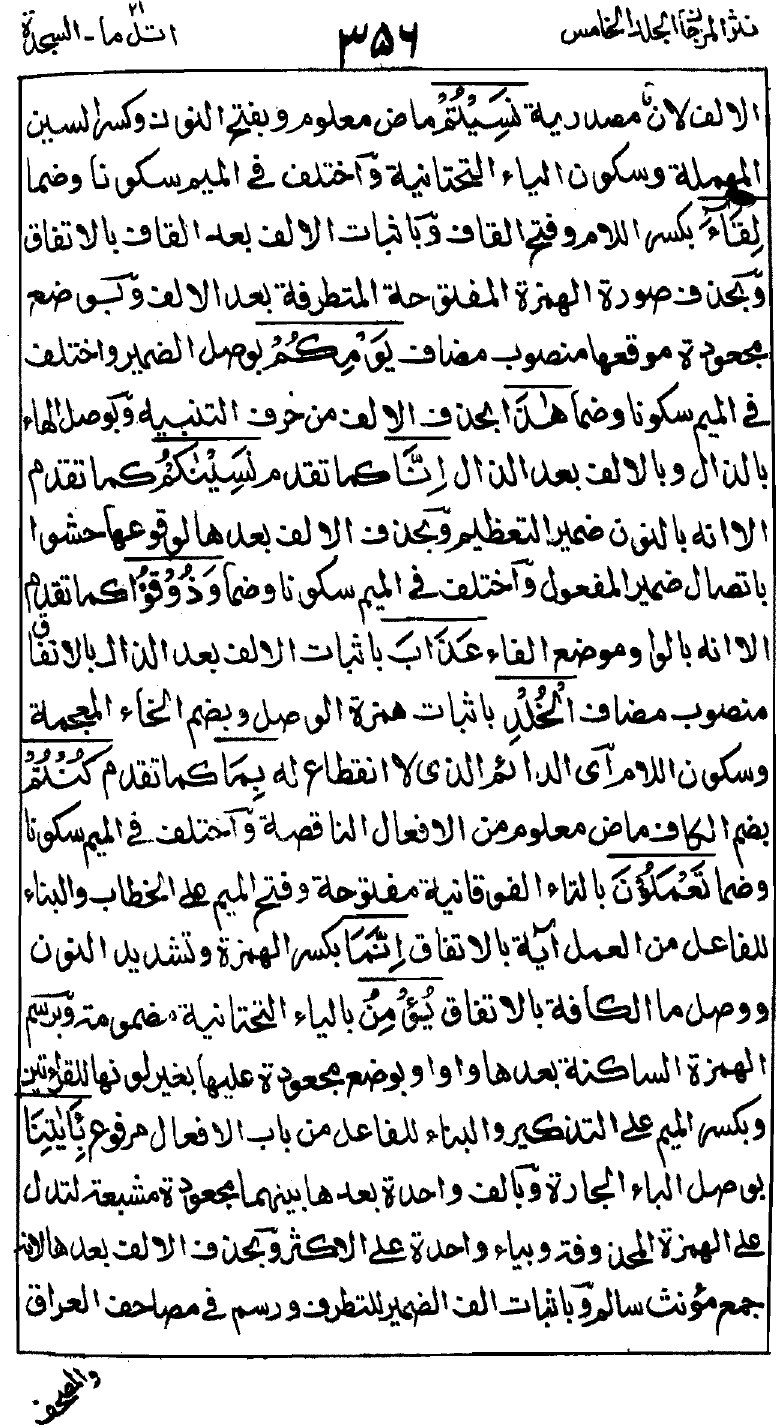 نثر المرجان الجلد الخامس
٣٥٦
اتل ما - السجدة
٢١
الالف لان ما مصدرية نَسِيْتُمْ ماض معلوم و بفتح النون وكسر السين
المهملة وسكون الياء التحتانية وّاختلف في الميم سكونا وضما
لِقَاءَ بكسر اللام وفتح القاف وّباثبات الالف بعد القاف بالاتفاق
وّبحذف صورة الهمزة المفتوحة المتطرفة بعد الالف وّبوضع
مجعودة موقعها منصوب مضاف يَوْمِكُمْ بوصل الضمير واختلف
في الميم سكونا وضما هٰذَا بحذف الالف من حرف التنبيه وّبوصل الهاء
بالذال وبالالف بعد الذال اِنَّا كما تقدم نَسِيْنٰكُمْ كما تقدم
الا انه بالنون ضمير التعظيم وّبحذف الالف بعدها لوقوعها حشوا
باتصال ضمير المفعول وّاختلف في الميم سكونا وضما وَذُوْقُوْا كما تقدم
الا انه بالواو موضع الفاء عَذَابَ باثبات الالف بعد الذال بالاتفاق
منصوب مضاف الْخُلْدِ باثبات همزة الوصل و بضم الخاء المعجمة
وسكون اللام آى الدائم الذى لا انقطاع له بِمَا كما تقدم كُنْتُمْ
بضم الكاف ماض معلوم من الافعال الناقصة وّاختلف في الميم سكونا
وضما تَعْمَلُوْنَ بالتاء الفوقانية مفتوحة وفتح الميم على الخطاب والبناء
للفاعل من العمل آية بالاتفاق اِنَّمَا بكسر الهمزة وتشديد النون
ووصل ما الكافة بالاتفاق يُؤْمِنُ بالياء التحتانية مضمومة وّبرسم
الهمزة الساكنة بعدها واوا وبوضع مجعودة عليها بغير لونها للقراءتين
وبكسر الميم على التذكير والبناء للفاعل من باب الافعال مرفوع بِاٰيٰتِنَا
بوصل الباء الجارة وّبالف واحدة بعدها بينهما مجعودة مشبعة لتدل
على الهمزة المحذوفة وبياء واحدة على الاكثر وّبحذف الالف بعدها لانه
جمع مؤنث سالم وّباثبات الف الضمير للتطرف ورسم في مصاحف العراق
والمصحف